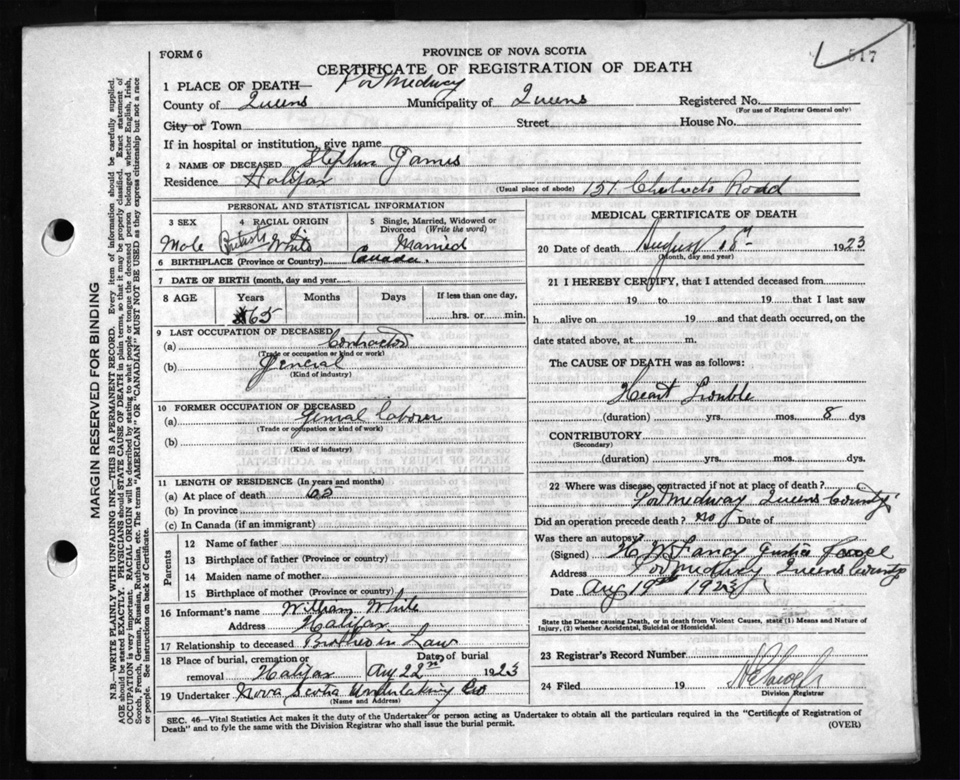 517
FORM 6
PROVINCE OF NOVA SCOTIA
CERTIFICATE OF REGISTRATION OF DEATH
1 PLACE OF DEATH— Por Medway
County of Queens Municipality of Queens Registered No.
(For use of Registrar General only)
City or Town Street House No.
If in hospital or institution, give name
2 NAME OF DECEASED Stephen James
Residence Halifax (Usual place of abode) 151 Chebucto Road
PERSONAL AND STATISTICAL INFORMATION
3 SEX 4 RACIAL ORIGIN 5 Single, Married, Widowed or
Divorced (Write the word)
Male White Married
6 BIRTHPLACE (Province or Country) Canada.
7 DATE OF BIRTH (month, day and year)
8 AGE Years Months Days If less than one day,
65 hrs. or min.
9 LAST OCCUPATION OF DECEASED
(a) Contractor
(Trade or occupation or kind or work)
(b) General
(Kind of industry)
10 FORMER OCCUPATION OF DECEASED
(a) General Laborer
(Trade or occupation or kind of work)
(b)
(Kind of industry)
11 LENGTH OF RESIDENCE (In years and months)
(a) At place of death 65
(b) In province
(c) In Canada (if an immigrant)
Parents
12 Name of father
13 Birthplace of father (Province or country)
14 Maiden name of mother
15 Birthplace of mother (Province or country)
16 Informant's name William White
Address Halifax
17 Relationship to deceased Brother in Law
18 Place of burial, cremation or Date of burial
removal Halifax Aug 22nd 1923
19 Undertaker Nova Scotia Undertaking Co
(Name and Address)
MEDICAL CERTIFICATE OF DEATH
20 Date of death August 18th 1923
(Month, day and year)
21 I HEREBY CERTIFY, that I attended deceased from
19 to 19 that I last saw
h alive on 19 and that death occurred, on the
date stated above, at m.
The CAUSE OF DEATH was as follows:
Heart Trouble
(duration) yrs. mos. 8 dys
CONTRIBUTORY
(Secondary)
(duration) yrs. mos. dys
22 Where was disease contracted if not at place of death?
Por Medway Queens County
Did an operation precede death? no Date of
Was there an autopsy?
(Signed) Justice Peace
Address Por Medway Queens County
Date Aug 19th 1923
State the Disease causing Death, or in death from Violent Causes, state (1) Means and Nature of
Injury, (2) whether Accidental, Suicidal or Homicidal.
23 Registrar's Record Number
24 Filed 19
Division Registrar
SEC. 46—Vital Statistics Act makes it the duty of the Undertaker or person acting as Undertaker to obtain all the particulars required in the "Certificate of Registration of
Death" and to fyle the same with the Division Registrar who shall issue the burial permit. (OVER)
MARGIN RESERVED FOR BINDING
N.B.—WRITE PLAINLY WITH UNFADING INK—THIS IS A PERMANENT RECORD. Every item of information should be carefully supplied.
AGE should be stated EXACTLY. PHYSICIANS should STATE CAUSE OF DEATH in plain terms, so that it may be properly classified. Exact statement of
OCCUPATION is very important. RACIAL ORIGIN will be described by stating to what people or tongue the deceased person belonged, whether English, Irish,
Scotch, French, German, Russian, Ruthenian, etc. The terms "AMERICAN" or "CANADIAN" MUST NOT BE USED as they express citizenship but not a race
or people. See instructions on back of Certificate.